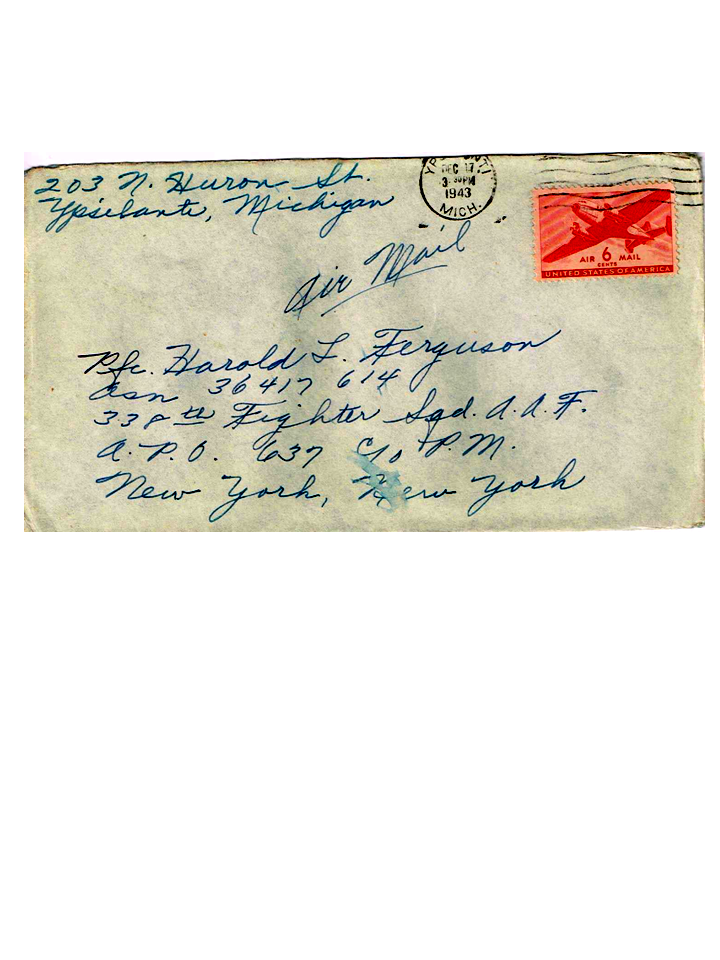 203 N. Huron St.
Ypsilanti, Michigan
DEC 17
3 30 PM
1943
MICH.
AIR 6 MAIL
CENTS
UNITED STATES OF AMERICA
Air Mail
Pfc. Harold L. Ferguson
Asn 36417 614
338th Fighter Sqd. A.A.F.
A.P.O. 637 c/o P.M.
New York, New York